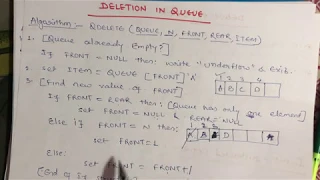 DELETION IN QUEUE
Algorithm:- QDELETE (QUEUE, N, FRONT, REAR, ITEM)
1. [Queue already Empty?]
If FRONT = NULL then: write "Underflow" & Exit.
2. Set ITEM = QUEUE [FRONT] 'A'
1 2 3 4
A B C D
3. [Find new value of FRONT]
If FRONT = REAR then: [Queue has only one element]
Set FRONT = NULL & REAR = NULL
Else if FRONT = N then:
1 2 3
A D
set FRONT = 1
Else:
set FRONT = FRONT +1
[End of If